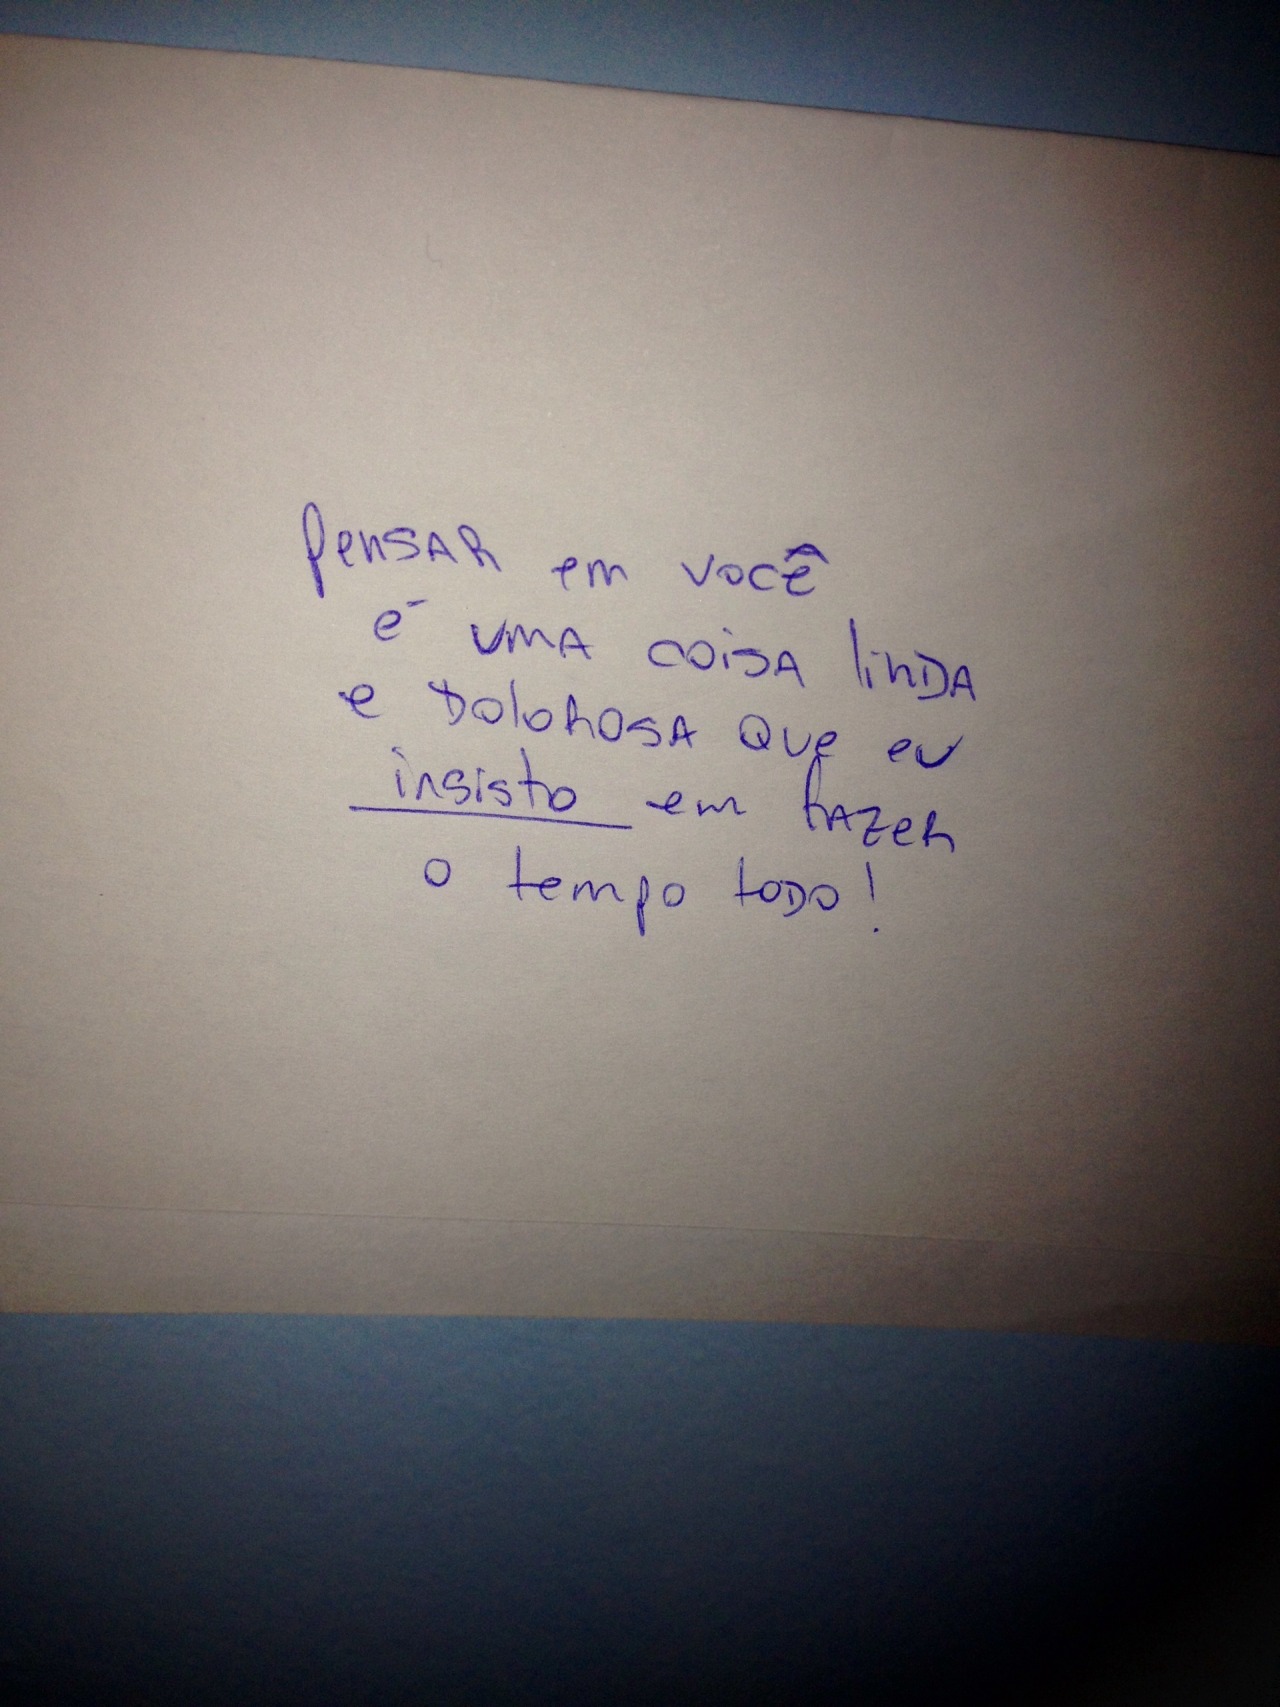 Pensar em você
é uma coisa linda
e dolorosa que eu
insisto em fazer
o tempo todo!